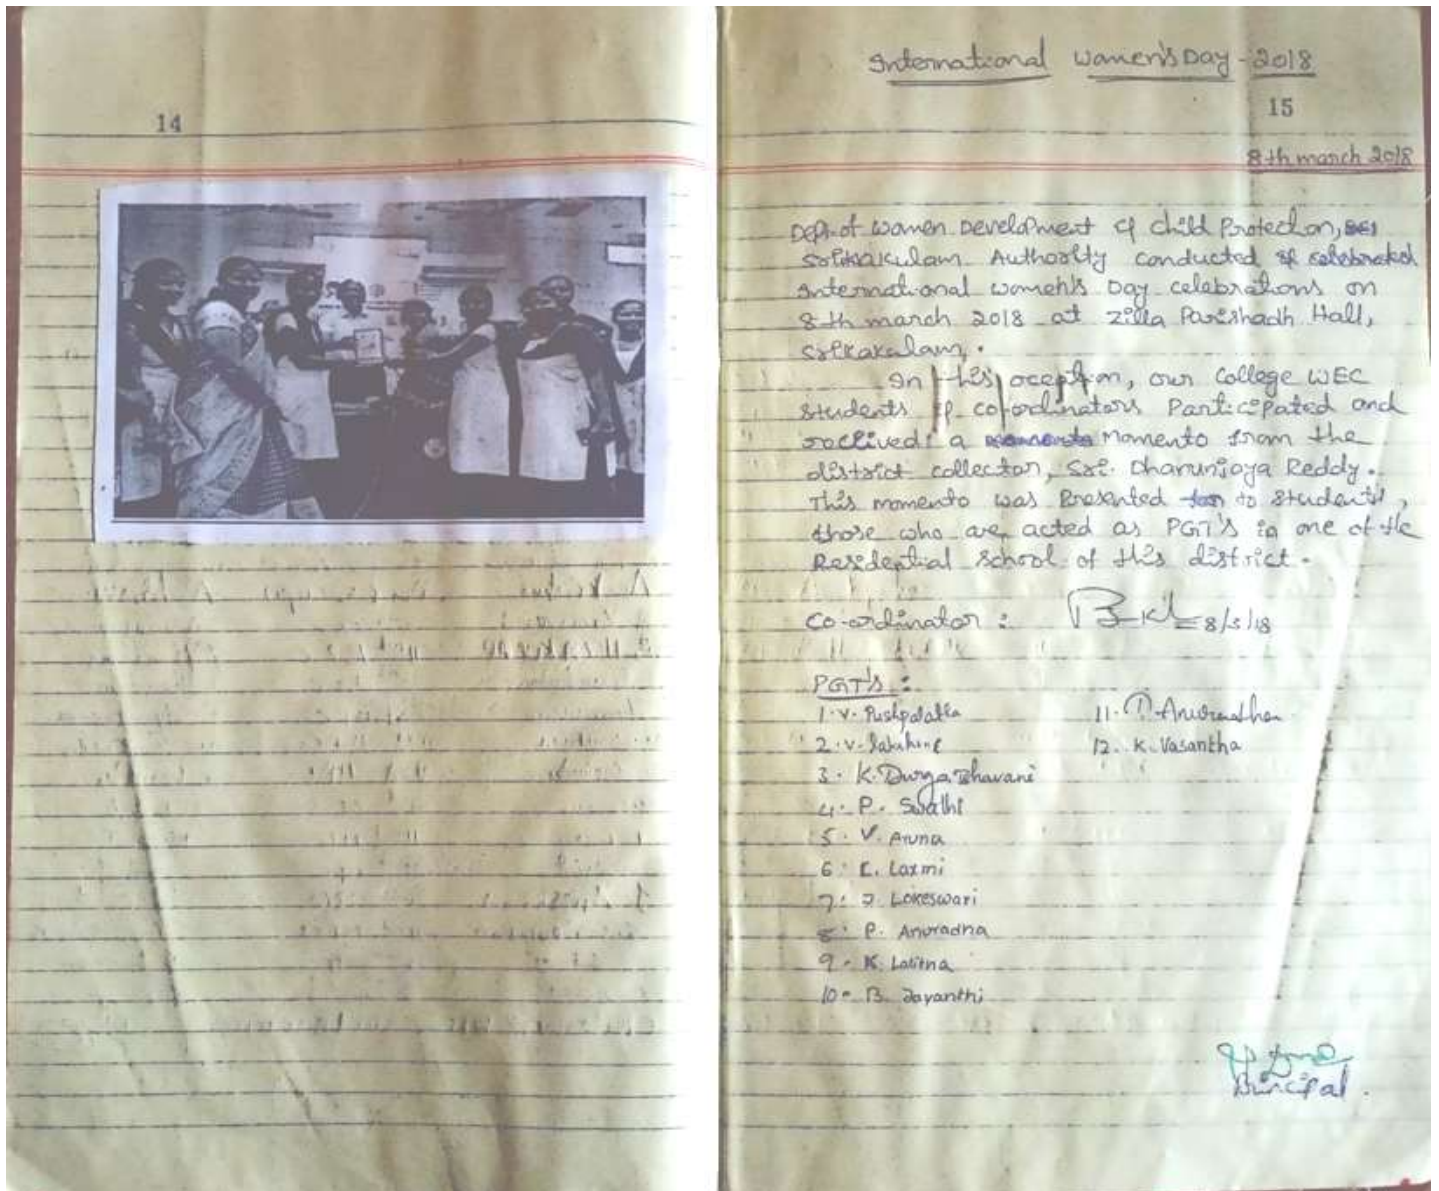 14
International Women's Day - 2018
15
8th march 2018
Dept of women Development & Child Protection,
Srikakulam Authority conducted & celebrated
International women's Day celebrations on
8th march 2018 at Zilla Parishadh Hall,
Srikakulam.
In this oception, our College WEC
Students & co-ordinators Participated and
recived a Momento from the
district collector, Sri. Dhanunjaya Reddy.
This momento was Presented to Students,
those who are acted as PGT's in one of the
Residential School of this district.
Co-ordinator : 8/3/18
PGT's :
1. V. Pushpalatha
2. V.
3. K. Durga Bhavani
4. P. Swathi
5. V. Aruna
6. L. Laxmi
7. J. Lokeswari
8. P. Anuradha
9. K. Lalitha
10. B. Jayanthi
11. Anuradha
12. K. Vasantha
Principal.